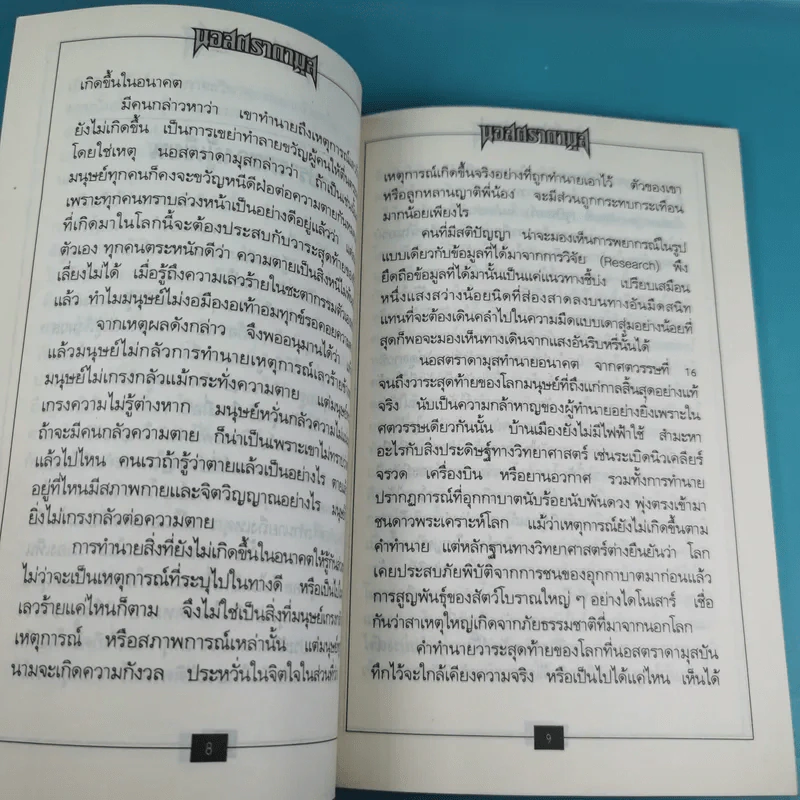 นอสตราดามุส
เกิดขึ้นในอนาคต
มีคนกล่าวหาว่า เขาทำนายถึงเหตุการณ์
ยังไม่เกิดขึ้น เป็นการเขย่าทำลายขวัญผู้คนให้
โดยใช่เหตุ นอสตราดามุสกล่าวว่า ถ้าเป็นเช่น
มนุษย์ทุกคนก็คงจะขวัญหนีดีฝ่อต่อความตายกัน
เพราะทุกคนทราบล่วงหน้าเป็นอย่างดีอยู่แล้วว่า
ที่เกิดมาในโลกนี้จะต้องประสบกับวาระสุดท้ายของ
ตัวเอง ทุกคนตระหนักดีว่า ความตายเป็นสิ่งหนี
เลี่ยงไม่ได้ เมื่อรู้ถึงความเลวร้ายในชะตากรรมตัว
แล้ว ทำไมมนุษย์ไม่งอมืองอเท้าอมทุกข์รอคอยความ
จากเหตุผลดังกล่าว จึงพออนุมานได้ว่า
แล้วมนุษย์ไม่กลัวการทำนายเหตุการณ์เลวร้าย
มนุษย์ไม่เกรงกลัวแม้กระทั่งความตาย แต่มนุษย์
เกรงความไม่รู้ต่างหาก มนุษย์หวั่นกลัวความ
ถ้าจะมีคนกลัวความตาย ก็น่าเป็นเพราะเขาไม่ทราบ
แล้วไปไหน คนเราถ้ารู้ว่าตายแล้วเป็นอย่างไร ตาย
อยู่ที่ไหนมีสภาพกายและจิตวิญญาณอย่างไร
ยิ่งไม่เกรงกลัวต่อความตาย
การทำนายสิ่งที่ยังไม่เกิดขึ้นในอนาคตให้รู้กัน
ไม่ว่าจะเป็นเหตุการณ์ที่ระบุไปในทางดี หรือเป็น
เลวร้ายแค่ไหนก็ตาม จึงไม่ใช่เป็นสิ่งที่มนุษย์เกรง
เหตุการณ์ หรือสภาพการณ์เหล่านั้น แต่มนุษย์
นามจะเกิดความกังวล ประหวั่นในจิตใจในส่วนที่
8
นอสตราดามุส
เหตุการณ์เกิดขึ้นจริงอย่างที่ถูกทำนายเอาไว้ ตัวของเขา
หรือลูกหลานญาติพี่น้อง จะมีส่วนถูกกระทบกระเทือน
มากน้อยเพียงไร
คนที่มีสติปัญญา น่าจะมองเห็นการพยากรณ์ในรูป
แบบเดียวกับข้อมูลที่ได้มาจากการวิจัย (Research) พึง
ยึดถือข้อมูลที่ได้มานั้นเป็นแค่แนวทางชี้บ่ง เปรียบเสมือน
หนึ่งแสงสว่างน้อยนิดที่ส่องสาดลงบนทางอันมืดสนิท
แทนที่จะต้องเดินคลำไปในความมืดแบบเดาสุ่มอย่างน้อยที่
สุดก็พอจะมองเห็นทางเดินจากแสงอันริบหรี่นั้นได้
นอสตราดามุสทำนายอนาคต จากศตวรรษที่ 16
จนถึงวาระสุดท้ายของโลกมนุษย์ที่ถึงแก่กาลสิ้นสุดอย่างแท้
จริง นับเป็นความกล้าหาญของผู้ทำนายอย่างยิ่งเพราะใน
ศตวรรษเดียวกันนั้น บ้านเมืองยังไม่มีไฟฟ้าใช้ สำมะหา
อะไรกับสิ่งประดิษฐ์ทางวิทยาศาสตร์ เช่นระเบิดนิวเคลียร์
จรวด เครื่องบิน หรือยานอวกาศ รวมทั้งการทำนาย
ปรากฏการณ์ที่อุกกาบาตนับร้อยนับพันดวง พุ่งตรงเข้ามา
ชนดาวพระเคราะห์โลก แม้ว่าเหตุการณ์ยังไม่เกิดขึ้นตาม
คำทำนาย แต่หลักฐานทางวิทยาศาสตร์ต่างยืนยันว่า โลก
เคยประสบภัยพิบัติจากการชนของอุกกาบาตมาก่อนแล้ว
การสูญพันธุ์ของสัตว์โบราณใหญ่ ๆ อย่างไดโนเสาร์ เชื่อ
กันว่าสาเหตุใหญ่เกิดจากภัยธรรมชาติที่มาจากนอกโลก
คำทำนายวาระสุดท้ายของโลกที่นอสตราดามุสบัน
ทึกไว้จะใกล้เคียงความจริง หรือเป็นไปได้แค่ไหน เห็นได้
9